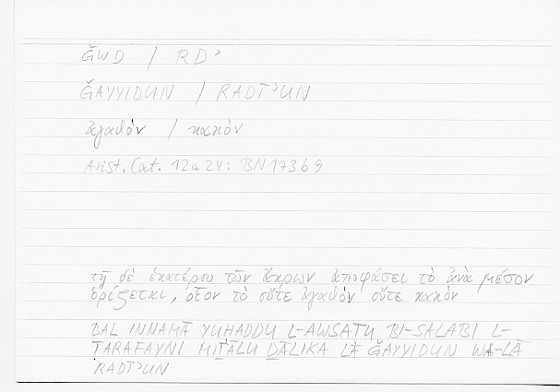 ǦWD / RDʾ
ǦAYYIDUN / RADĪʾUN
ἀγαθόν / κακόν
Arist. Cat. 12a24: BN173b9
τῇ δὲ ἑκατέρου τῶν ἄκρων ἀποφάσει τὸ ἀνὰ μέσον
ὁρίζεται, οἷον τὸ οὔτε ἀγαθὸν οὔτε κακὸν
BAL INNAMĀ YUHADDU L-AWSATU BI-SALABI L-
TARAFAYNI MIṮĀLU ḎĀLIKA LĀ ǦAYYIDUN WA-LĀ
RADĪʾUN